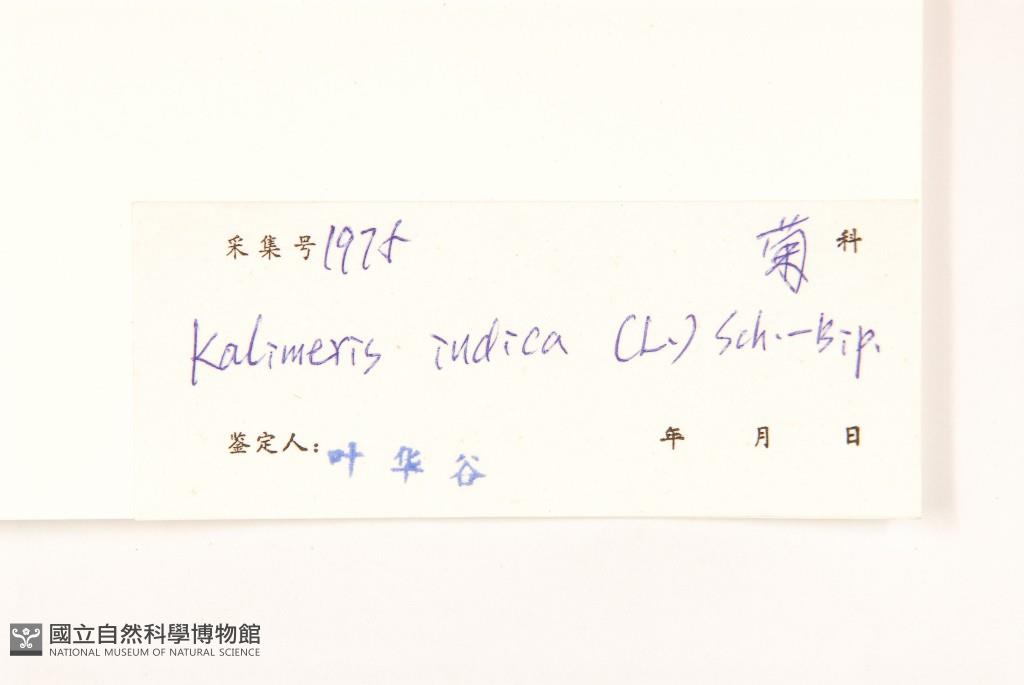 采集号 1975 菊 科
Kalimeris indica (L.) Sch.-Bip.
鉴定人: 叶华谷 年 月 日
國立自然科學博物館
NATIONAL MUSEUM OF NATURAL SCIENCE